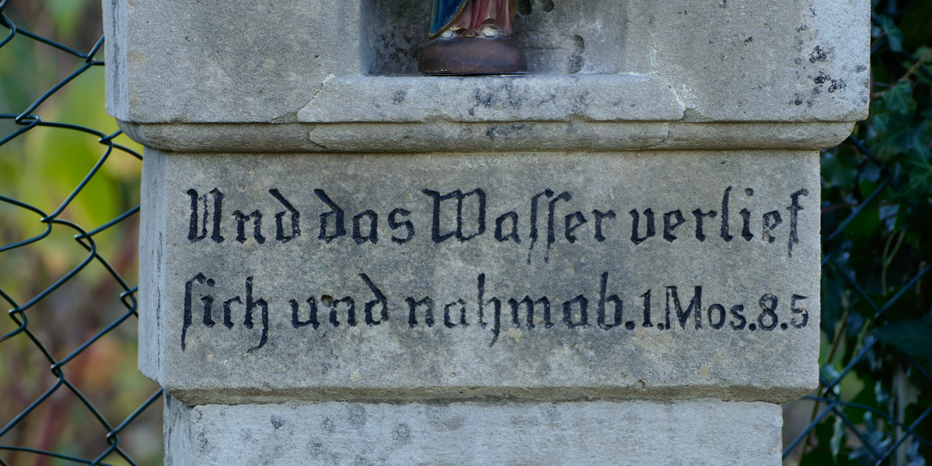 Und das Wasser verlief
sich und nahm ab. 1. Mos. 8. 5